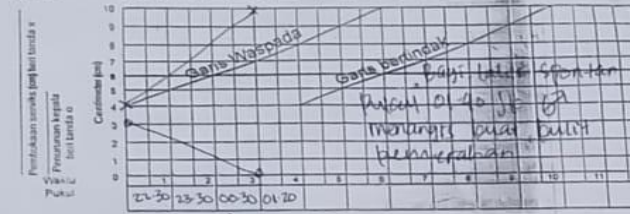 Pembukaan serviks (cm) beri tanda x
Penurunan kepala
beri tanda o
Centimeter (cm)
10
9
8
7
6
5
4
3
2
1
0
Garis Waspada
Garis bertindak
Bayi lahir spontan
Pukul 01.40
menangis kuat, kulit
kemerahan
Waktu
Pukul
1 2 3 4 5 6 7 8 9 10 11
22.30 23.30 00.30 01.20